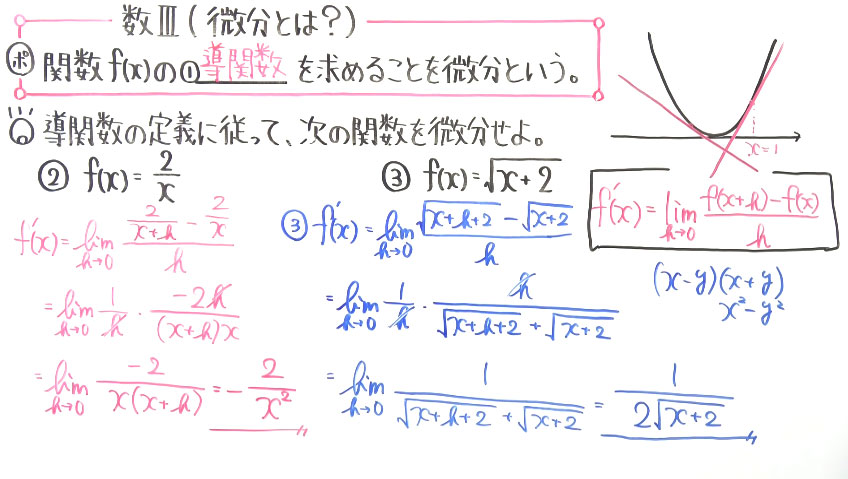 数Ⅲ(微分とは?)
ポ 関数f(x)の①導関数を求めることを微分という。
導関数の定義に従って、次の関数を微分せよ。
② f(x)=2/x
③ f(x)=√(x+2)
x=1
f'(x)=lim h→0 (f(x+h)-f(x))/h
(x-y)(x+y)
x²-y²
f'(x)=lim h→0 (2/(x+h) - 2/x)/h
=lim h→0 1/h・(-2h)/((x+h)x)
=lim h→0 (-2)/(x(x+h)) = -2/x²
③ f'(x)=lim h→0 (√(x+h+2) - √(x+2))/h
=lim h→0 1/h・h/(√(x+h+2) + √(x+2))
=lim h→0 1/(√(x+h+2) + √(x+2)) = 1/(2√(x+2))